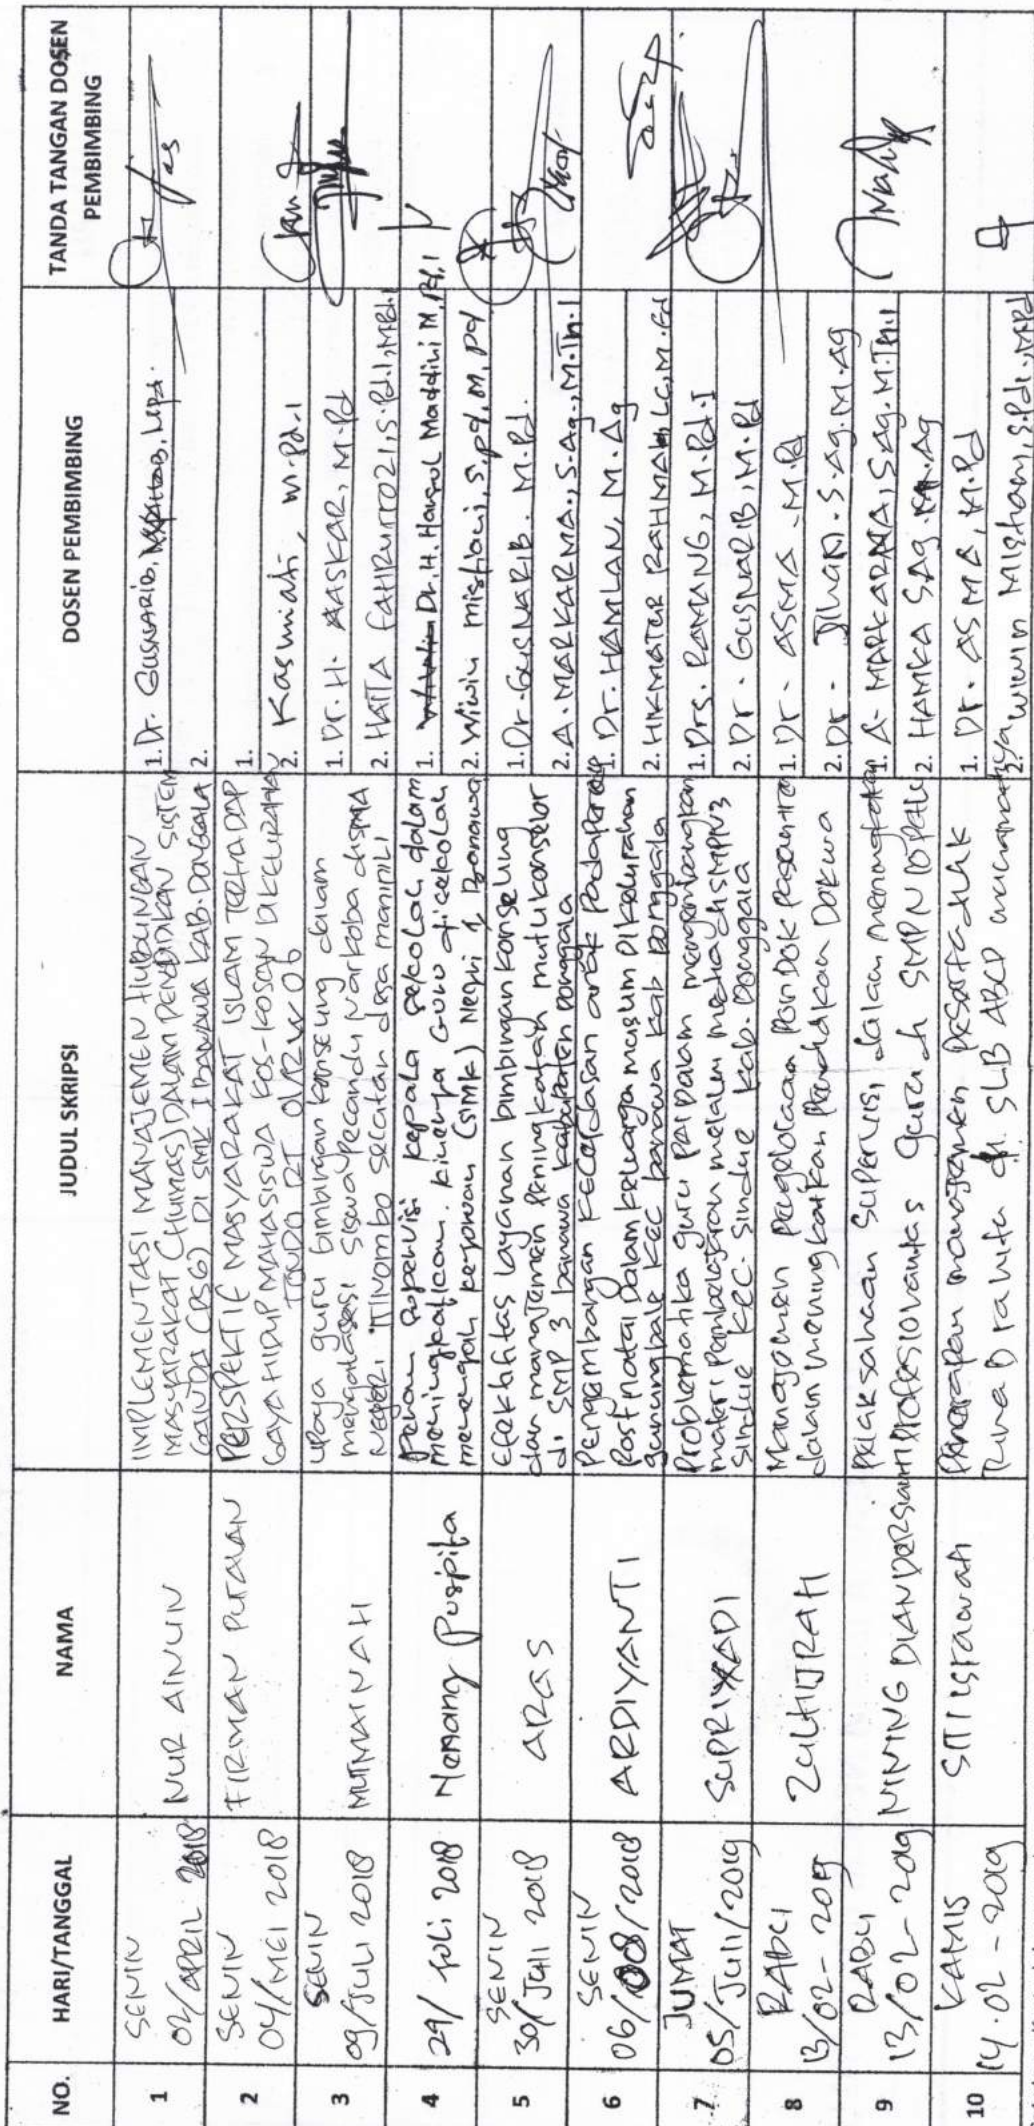 NO.
HARI/TANGGAL
NAMA
JUDUL SKRIPSI
DOSEN PEMBIMBING
TANDA TANGAN DOSEN
PEMBIMBING
1
SENIN
02/APRIL 2018
NUR AINUN
IMPLEMENTASI MANAJEMEN HUBUNGAN
MASYARAKAT (HUMAS) DALAM PENDIDIKAN SISTEM
GANDA (PSG) DI SMK 1 BANAWA KAB. DONGGALA
1. Dr. GUSNARIB,
2.
2
SENIN
04/MEI 2018
FIRMAN
PERSPEKTIF MASYARAKAT ISLAM TERHADAP
GAYA HIDUP MAHASISWA KOS-KOSAN DI KELURAHAN
TONDO RT 01/RW 06
1.
2. Kasmiati, M.Pd.I
3
SENIN
09/JULI 2018
MUTMAINAH
Upaya guru bimbingan konseling dalam
mengatasi siswa pecandu narkoba di SMA
Negeri 1 Tinombo selatan desa maninili
1. Dr. H. ASKAR, M.Pd
2. HATTA FAHRUROZI, S.Pd.I, M.Pd.I
4
29/ juli 2018
Nenang Puspita
peran supervisi kepala sekolah dalam
meningkatkan kinerja Guru disekolah
menengah kejuruan (SMK) Negri 1 Banawa
1. Dr. H. Hamsul Maddini M.Pd.I
2. Wiwin mistiani, S.pd, M.pd
5
SENIN
30/Juli 2018
ARAS
Efektifitas layanan bimbingan konseling
dan manajemen peningkatan mutu konselor
di SMP 3 banawa kabupaten Donggala
1. Dr. GUSNARIB. M.Pd.
2. A. MARKARMA, S.Ag., M.Th.I
6
SENIN
06/08/2018
ARDIYANTI
Pengembangan KECerdasan anak Pada periode
Post Natal Dalam keluarga muslim Di kelurahan
gunungbale Kec banawa kab Donggala
1. Dr. HAMLAN, M.Ag
2. HIKMATUR RAHMAH, Lc, M.Ed
7
JUMAT
05/Juli/2019
SUPRIYADI
Problematika guru PAI Dalam mengembangkan
materi Pembelajaran melalui media di SMPN 3
Sindue KEC. Sindue kab. Donggala
1. Drs. RAMANG, M.Pd.I
2. Dr. GUSNARIB, M.Pd
8
RABU
13/02-2019
ZULHIJRAH
Manajemen Pengelolaan Pondok pasantren
dalam meningkatkan Pendidikan Dakwa
1. Dr. ASMA. M.Pd
2. Dr. JIHAN. S.Ag. M.Ag
9
RABU
13/02-2019
NINING DIAN
Pelaksanaan Supervisi dalam meningkatkan
Profesionalitas guru di SMPN 10 Palu
1. A. MARKARMA, S.Ag. M.Th.I
2. HAMKA S.Ag. M.Ag
10
KAMIS
14.02-2019
SITI israwati
Penerapan manajemen peserta didik
Tuna Grahita di SLB ABCD
1. Dr. ASMA, M.Pd
2. Wiwin Mistiani, S.Pd., M.Pd